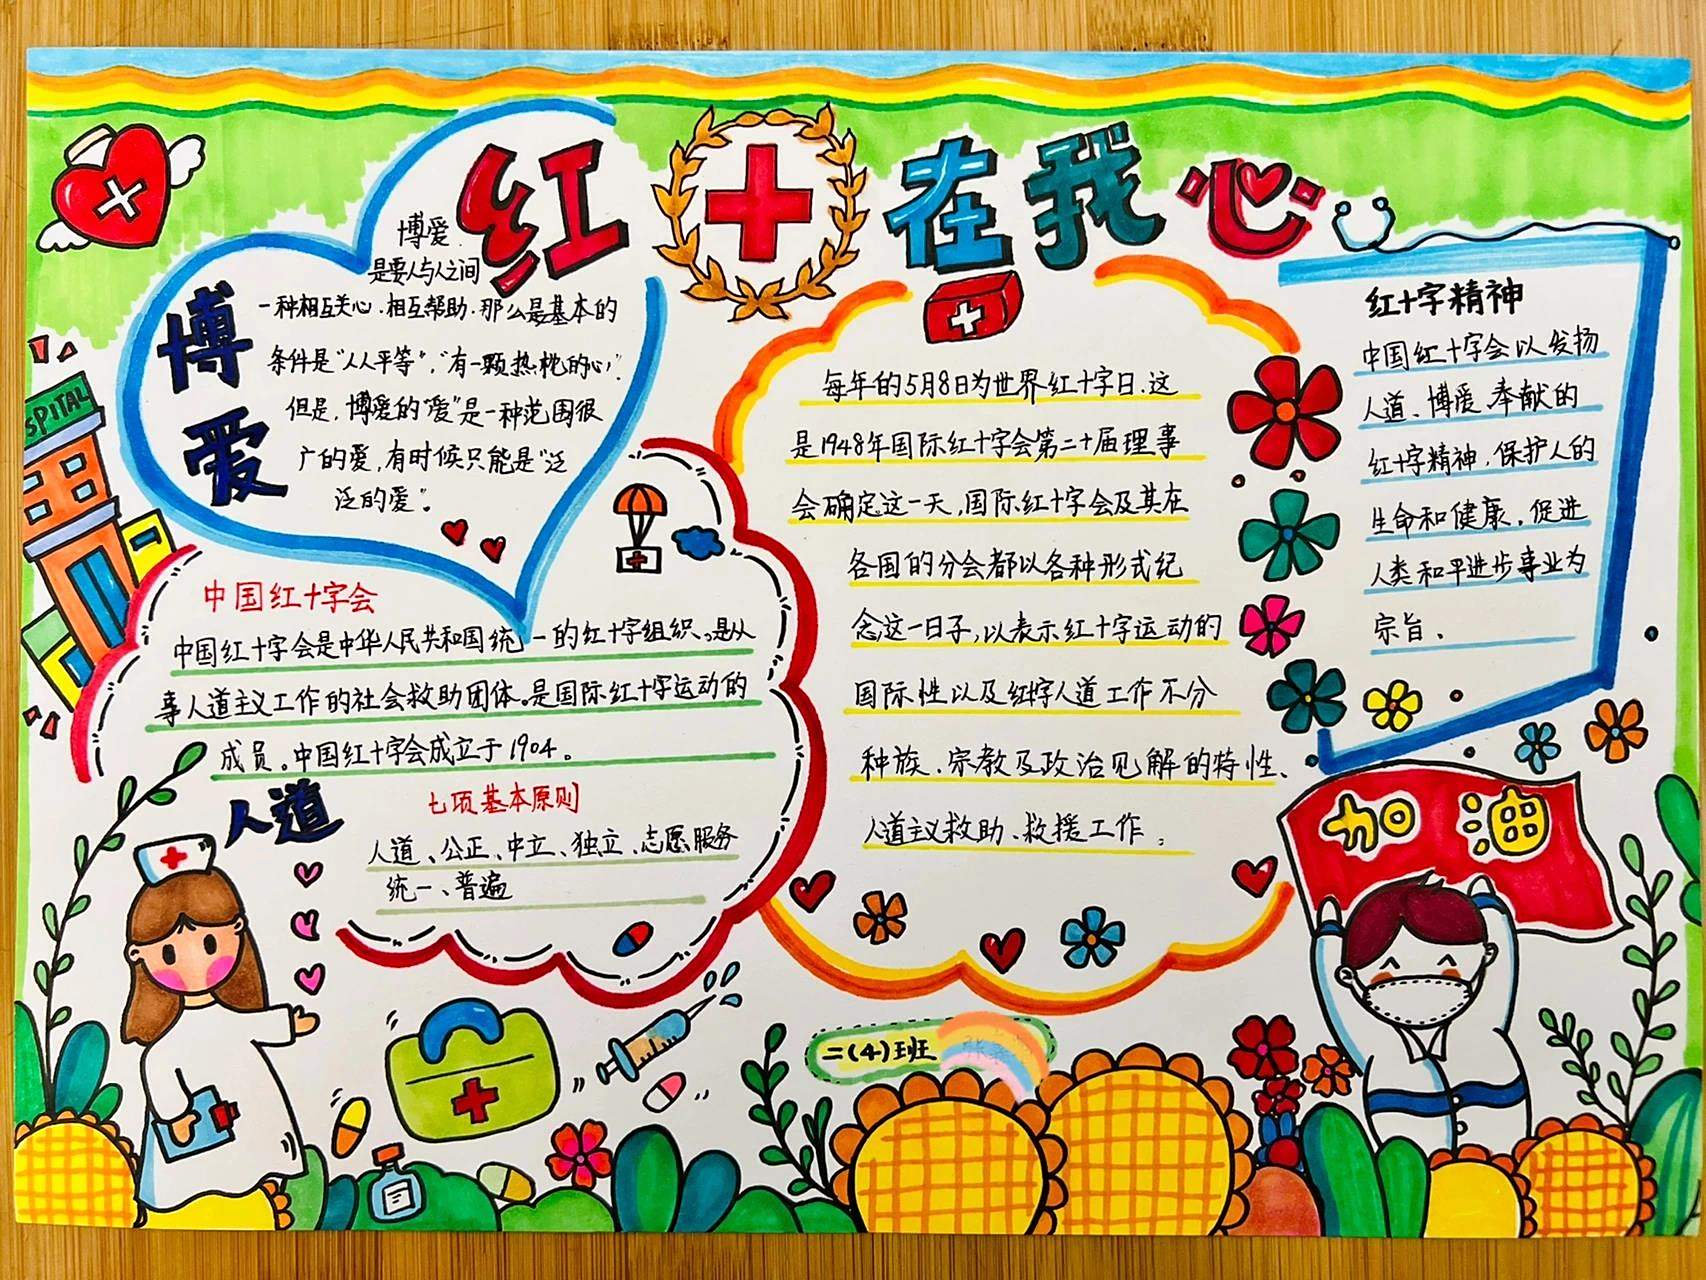 红十在我心
博爱
博爱
是要人与人之间
一种相互关心、相互帮助、那么最基本的
条件是“人人平等”,“有一颗热忱的心”.
但是,博爱的“爱”是一种范围很
广的爱,有时候只能是“泛
泛的爱”。
HOSPITAL
中国红十字会
中国红十字会是中华人民共和国统一的红十字组织。是从
事人道主义工作的社会救助团体。是国际红十字运动的
成员。中国红十字会成立于1904。
人道
七项基本原则
人道、公正、中立、独立、志愿服务
统一、普遍
每年的5月8日为世界红十字日.这
是1948年国际红十字会第二十届理事
会确定这一天,国际红十字会及其在
各国的分会都以各种形式纪
念这一日子,以表示红十字运动的
国际性以及红字人道工作不分
种族、宗教及政治见解的特性、
人道主义救助、救援工作。
红十字精神
中国红十字会以发扬
人道、博爱、奉献的
红十字精神,保护人的
生命和健康,促进
人类和平进步事业为
宗旨、
加油
二(4)班